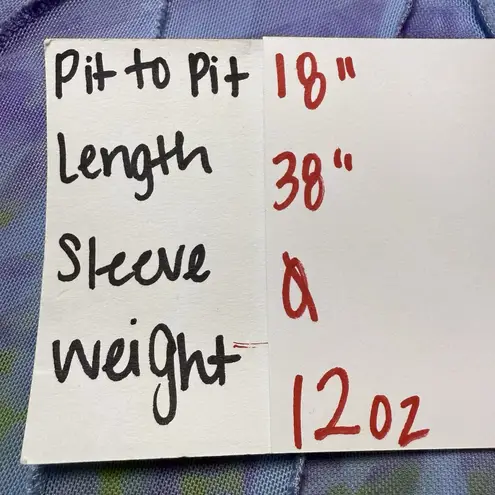 Pit to Pit 18"
Length 38"
Sleeve Ø
weight 12oz